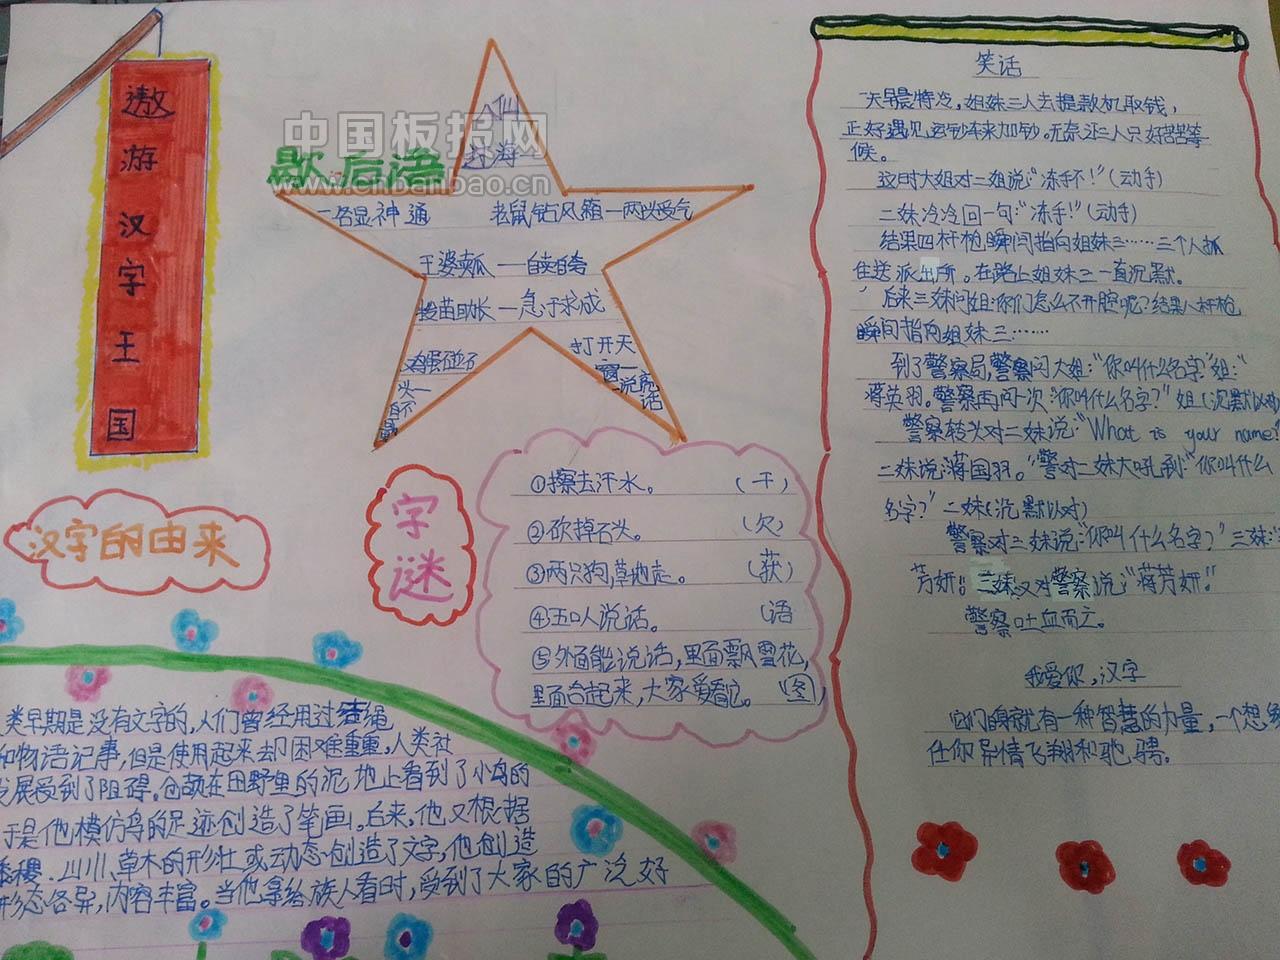 遨游汉字王国
中国板报网
www.chbanbao.cn
歇后语
八仙
过海一
一各显神通
老鼠钻风箱一两头受气
王婆卖瓜——自卖自夸
拔苗助长一急于求成
鸡蛋碰石
头一
打开天
窗一
说亮
话
汉字的由来
字谜
①擦去汗水。(干)
②砍掉石头。(欠)
③两只狗,草地走。(获)
④五口人说话。(语
⑤外面能说话,里面飘雪花,
里面合起来,大家爱看它。(图)
类早期是没有文字的,人们曾经用过结绳
和物语记事,但是使用起来却困难重重,人类社
发展受到了阻碍。仓颉在田野里的泥地上看到了小鸟的
于是他模仿鸟的足迹创造了笔画。后来,他又根据
山川、草木的形壮或动态创造了文字,他创造
形态各异,内容丰富。当他拿给族人看时,受到了大家的广泛好
笑话
一天早晨特冷,姐妹三人去提款机取钱,
正好遇见运钞车来加钞。无奈还三人只好苦苦等
候。
这时大姐对二姐说:“冻手不!”(动手)
二妹冷冷回一句:“冻手!”(动手)
结果四杆枪瞬间指向姐妹三……三个人抓
住送派出所。在路上姐妹三一直沉默。
后来三妹问姐:你们怎么不开腔呢?结果八杆枪
瞬间指向姐妹三……
到了警察局,警察问大姐:“你叫什么名字”姐:“
蒋英羽。警察再问一次:“你叫什么名字?”姐(沉默以对)
警察转头对二妹说:“What is your name?
二妹说:蒋国羽。”警对二妹大吼到:“你叫什么
名字?”二妹(沉默以对)
警察对三妹说:“你叫什么名字?”三妹:
芳妍!三妹又对警察说:“蒋芳妍!”
警察吐血而亡。
我爱你,汉字
它们自身就有一种智慧的力量,一个想象
任你异情飞翔和驰骋。